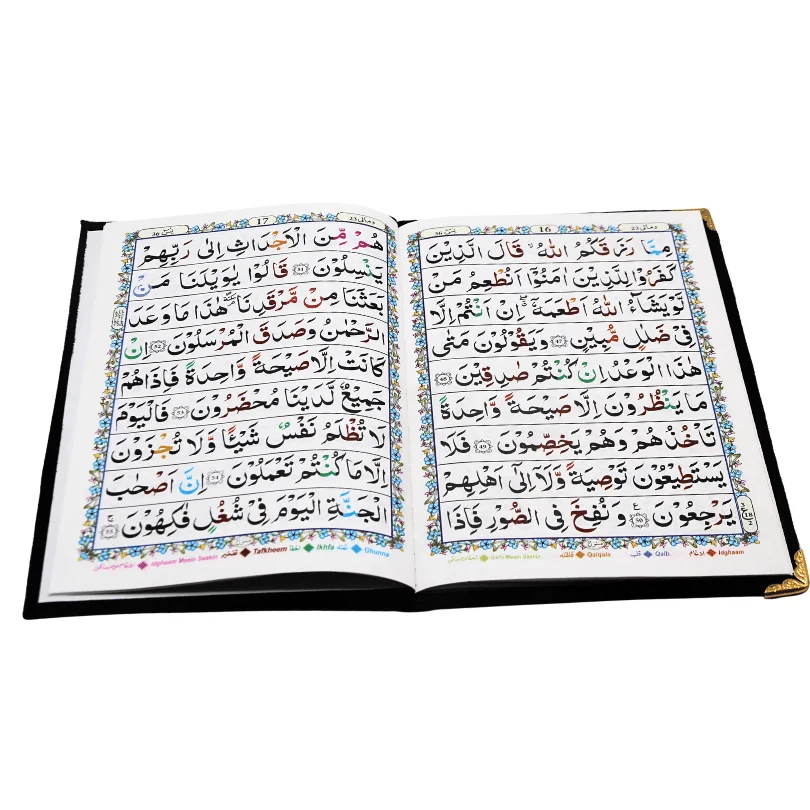 یٰسٓ 36
16
ومالی 23
مِمَّا رَزَقَكُمُ اللّٰهُ ۙ قَالَ الَّذِيْنَ
كَفَرُوْا لِلَّذِيْنَ اٰمَنُوْۤا اَنُطْعِمُ مَنْ
لَّوْ يَشَآءُ اللّٰهُ اَطْعَمَهٗۤ ۖ اِنْ اَنْتُمْ اِلَّا
فِىْ ضَلٰلٍ مُّبِيْنٍ 47 وَيَقُوْلُوْنَ مَتٰى
هٰذَا الْوَعْدُ اِنْ كُنْتُمْ صٰدِقِيْنَ 48
مَا يَنْظُرُوْنَ اِلَّا صَيْحَةً وَّاحِدَةً
تَاْخُذُهُمْ وَهُمْ يَخِصِّمُوْنَ 49 فَلَا
يَسْتَطِيْعُوْنَ تَوْصِيَةً وَّلَاۤ اِلٰٓى اَهْلِهِمْ
يَرْجِعُوْنَ 50 وَنُفِخَ فِى الصُّوْرِ فَاِذَا
ادغام Idghaam
قلب Qalb
قلقلہ Qalqala
Ikhfa Meem Saakin
یٰسٓ 36
17
ومالی 23
هُمْ مِّنَ الْاَجْدَاثِ اِلٰى رَبِّهِمْ
يَنْسِلُوْنَ 51 قَالُوْا يٰوَيْلَنَا مَنْۢ
بَعَثَنَا مِنْ مَّرْقَدِنَا ۘ هٰذَا مَا وَعَدَ
الرَّحْمٰنُ وَصَدَقَ الْمُرْسَلُوْنَ 52 اِنْ
كَانَتْ اِلَّا صَيْحَةً وَّاحِدَةً فَاِذَا هُمْ
جَمِيْعٌ لَّدَيْنَا مُحْضَرُوْنَ 53 فَالْيَوْمَ
لَا تُظْلَمُ نَفْسٌ شَيْـًٔا وَّلَا تُجْزَوْنَ
اِلَّا مَا كُنْتُمْ تَعْمَلُوْنَ 54 اِنَّ اَصْحٰبَ
الْجَنَّةِ الْيَوْمَ فِىْ شُغُلٍ فٰكِهُوْنَ 55
غنہ Ghunna
اخفا Ikhfa
تفخیم Tafkheem
Idghaam Meem Saakin